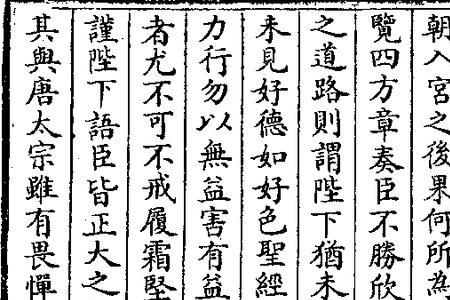 朝入宮之後果何所為
覽四方章奏臣不勝欣
之道路則謂陛下猶未
未見好德如好色聖經
力行勿以無益害有益
者尤不可不戒履霜堅
謹陛下語臣皆正大之
其與唐太宗雖有畏憚